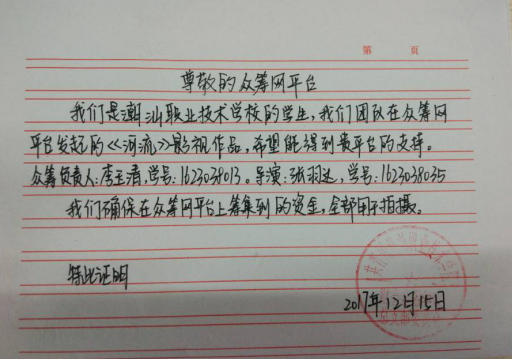 第 页
尊敬的众筹网平台
我们是潮汕职业技术学校的学生,我们团队在众筹网
平台发起的《河流》影视作品,希望能得到贵平台的支持。
众筹负责人:李玉清,学号:1623038013.导演:张羽达,学号:1623038035
我们确保在众筹网平台上筹集到的资金,全部用于拍摄。
特此证明
2017年12月15日